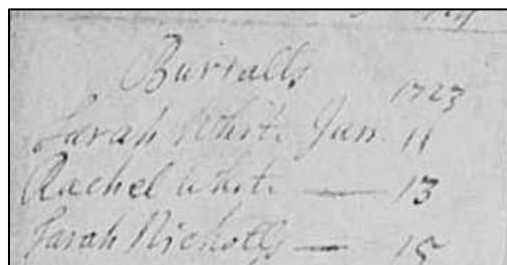 Burialls
1723
Sarah White Jan. 11
Rachel White — 13
Sarah Nicholls — 15